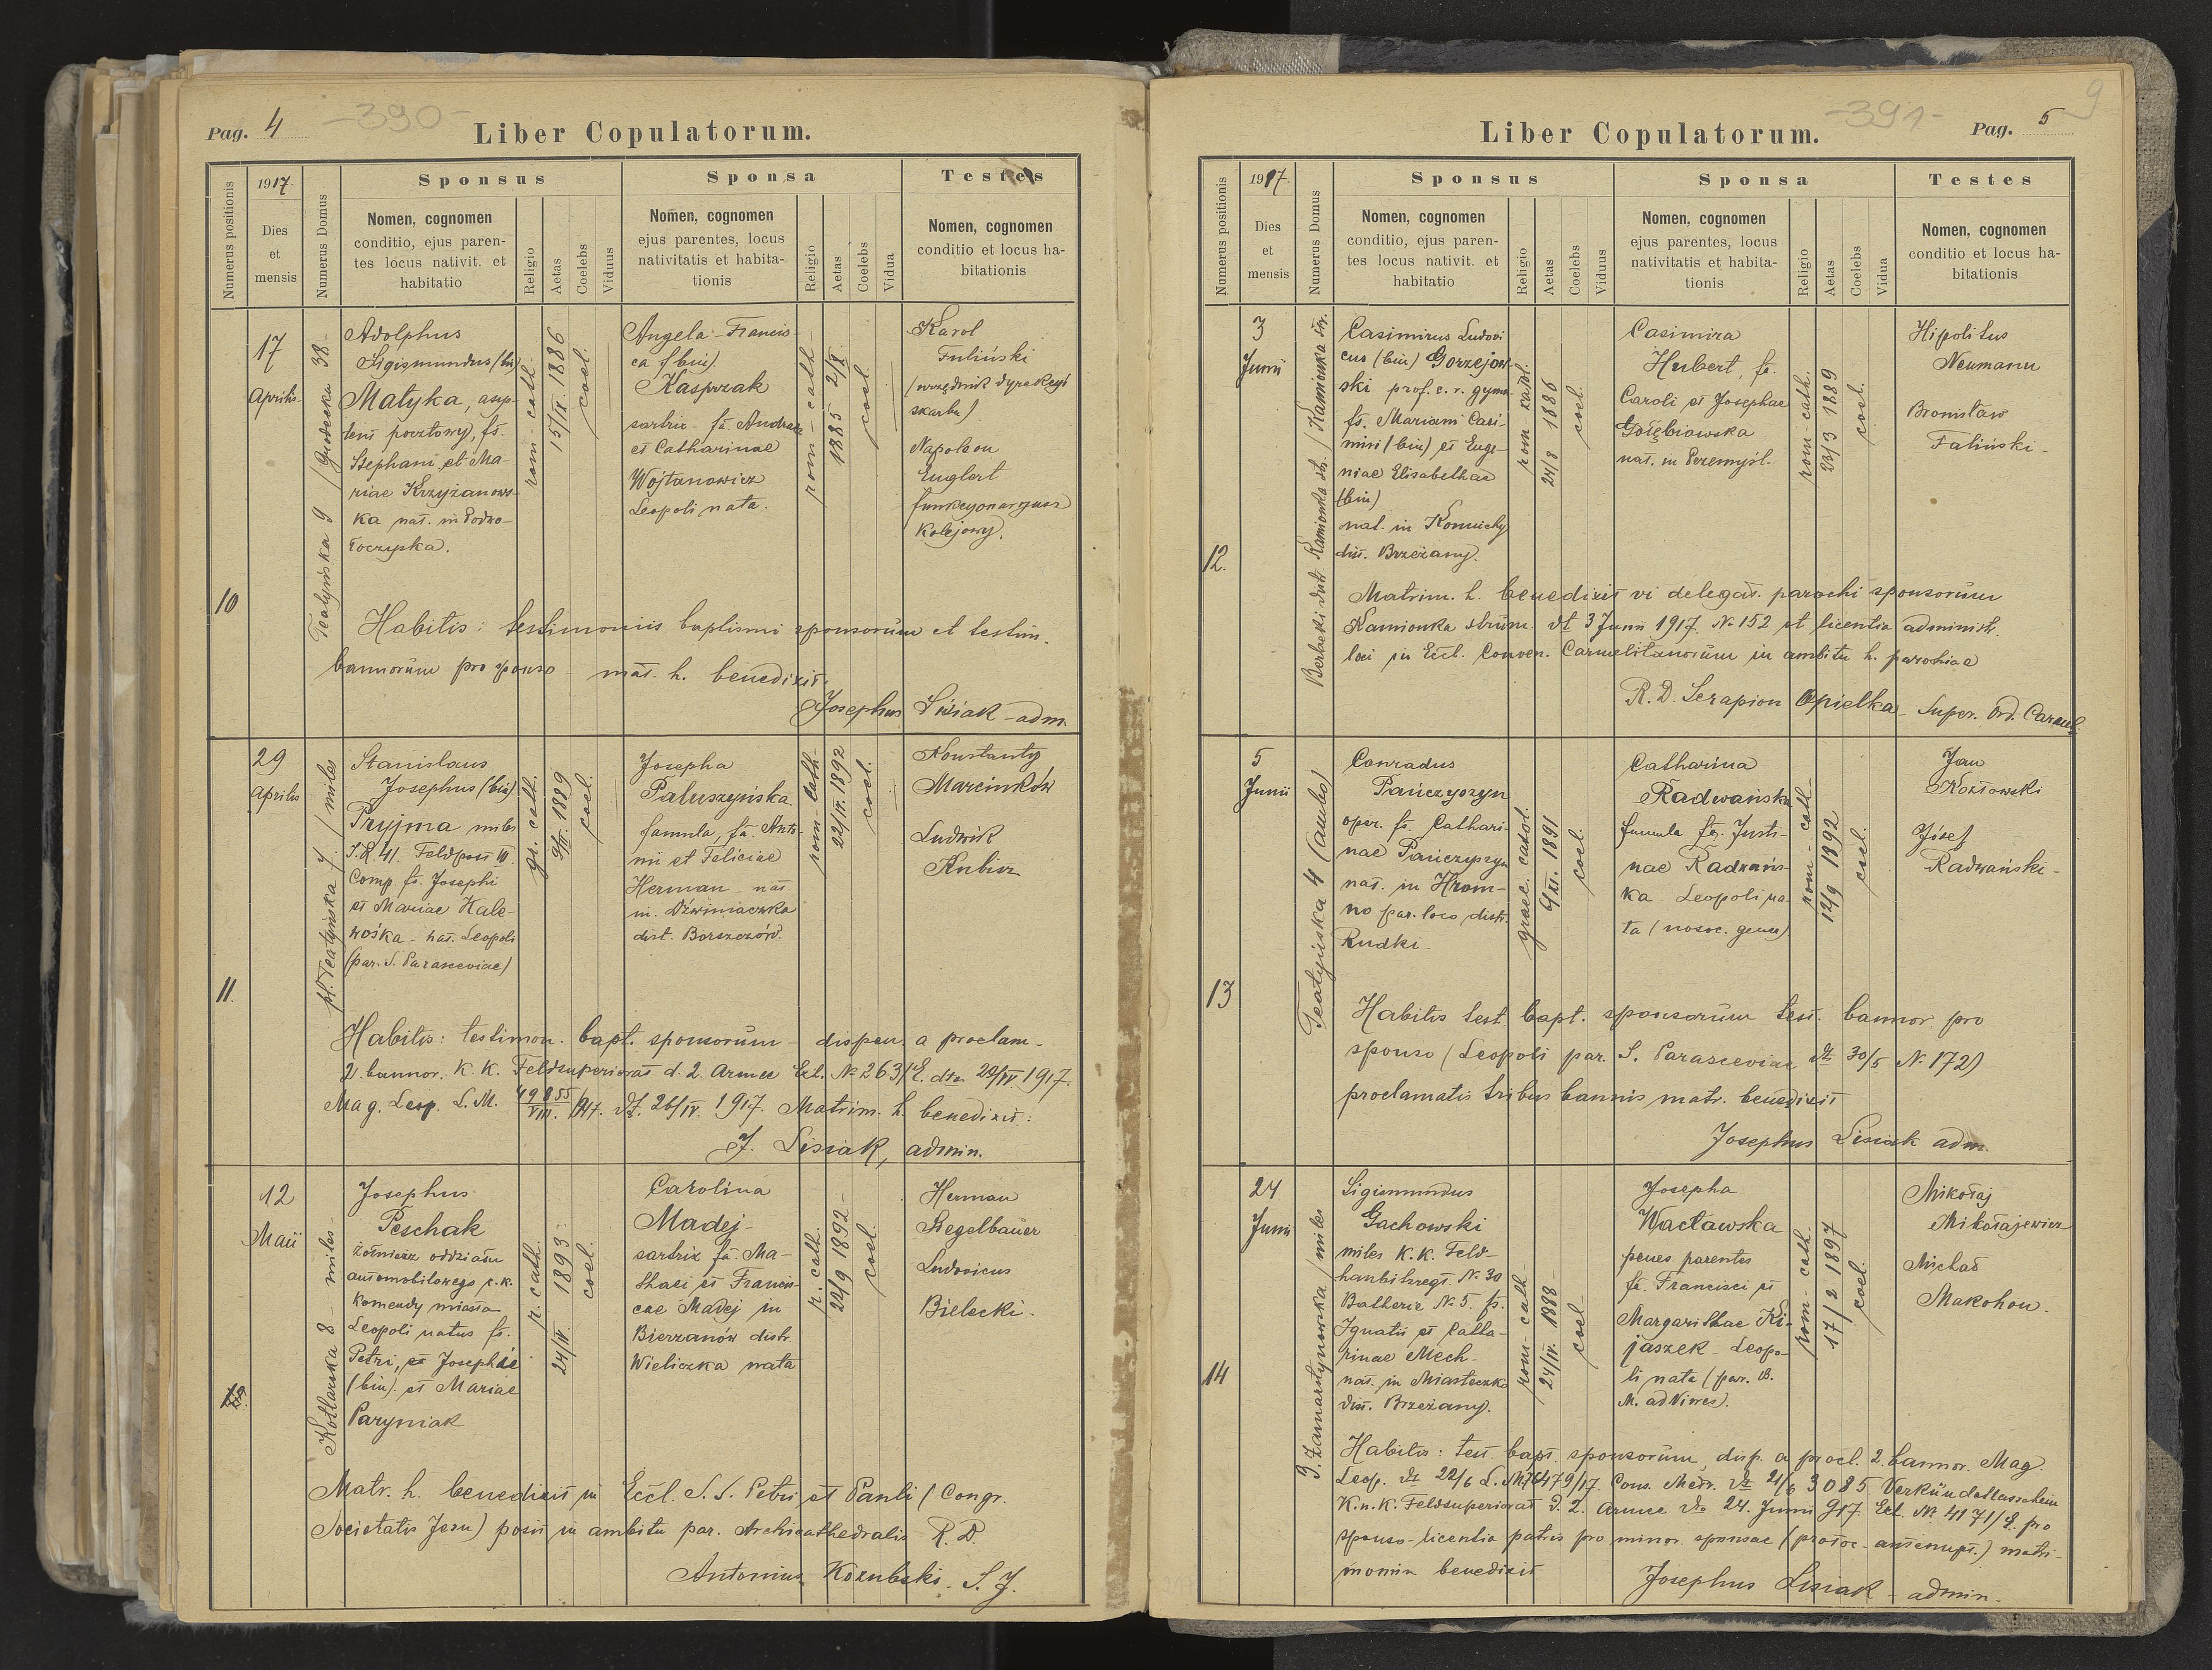 Pag. 4
-390-
Liber Copulatorum.
Numerus positionis
1917.
Dies
et
mensis
Numerus Domus
Sponsus
Nomen, cognomen
conditio, ejus paren-
tes locus nativit. et
habitatio
Religio
Aetas
Coelebs
Viduus
Sponsa
Nomen, cognomen
ejus parentes, locus
nativitatis et habita-
tionis
Religio
Aetas
Coelebs
Vidua
Testes
Nomen, cognomen
conditio et locus ha-
bitationis
10
17
Aprilis
Teatyńska 9 / Gródecka 38-
Adolphus
Sigismundus (bin)
Matyka, asys-
tent pocztowy, fs.
Stephani et Ma-
riae Krzyżanows-
ka nat. in Podwo-
łoczyska.
rom-cath.
15/IX. 1886
coel.
Angela-Francis-
ca (bin)
Kasprzak
sartrix fa. Andreae
et Catharinae
Wojtanowicz
Leopoli nata.
rom-cath-
1885 2/X
coel.
Karol
Fuliński
(urzędnik dyrekcyi
skarbu)
Napoleon
Englert
funkcyonaryusz
kolejowy.
Habitis: testimoniis baptismi sponsorum et testim.
bannorum pro sponso - mat. h. benedixit.
Josephus Lisiak - adm.
11.
29
Aprilis
pl. Teatyńska 7. / miles
Stanislaus
Josephus (bin)
Pryjma miles
I.R. 41. Feldpost III
Comp. fs. Josephi
et Mariae Kale-
nat. Leopoli
(par. S. Parasceviae)
gr. cath.
1889
coel.
Josepha
Paluszyńska
famula, fa. Anto-
nii et Feliciae
Herman nat.
in Dźwiniaczka
dist. Borszczów.
rom-cath-
22/II. 1892
coel.
Konstanty
Marcinków
Ludwik
Kubisz
Habitis: testimon. bapt. sponsorum - dispen. a proclam-
2. bannor. K. K. Feldsuperiorat d. 2. Armee Exl. No 263/E. dto 22/IV 1917.
Mag. Leop. L. M. 49855/VIII. 917. dt. 26/IV. 1917. Matrim. h. benedixit:
J. Lisiak, admin.
12.
12
Maii
Kotlarska 8 - miles-
Josephus
Peschak
żołnierz oddziału
automobilowego c.k.
komendy miasta
Leopoli natus fs.
Petri, et Josephae
(bin) et Mariae
Paryniak
r. cath.
24/IV. 1893
coel.
Carolina
Madej-
sartrix fa. Ma-
thaei et Francis-
cae Madej in
Bierzanów distr.
Wieliczka nata
r. cath.
22/9 1892-
coel.
Herman
Siegelbauer
Ludovicus
Bielecki.
Matr. h. benedixit in Eccl. S.S. Petri et Pauli (Congr.
Societatis Jesu) posit in ambitu par. Archicathedralis R. D.
Antonius S. J.
Pag. 5
-391-
9
Liber Copulatorum.
Numerus positionis
1917.
Dies
et
mensis
Numerus Domus
Sponsus
Nomen, cognomen
conditio, ejus paren-
tes locus nativit. et
habitatio
Religio
Aetas
Coelebs
Viduus
Sponsa
Nomen, cognomen
ejus parentes, locus
nativitatis et habita-
tionis
Religio
Aetas
Coelebs
Vidua
Testes
Nomen, cognomen
conditio et locus ha-
bitationis
12.
3
Junii
distr. Kamionka str. / Kamionka str.
Casimirus Ludovi
cus (bin) Gorzejow
ski prof. c. r. gymn.
fs. Mariani Casi-
miri (bin) et Euge-
niae Elisabethae
(bin)
nat. in Koniuchy
dist. Brzeżany.
rom kath.
24/8 1886
coel.
Casimira
Hubert, fa.
Caroli et Josephae
Gołębiowska
nat. in Przemyśl-
rom-cath.
23/3 1889
coel.
Hipolitus
Neumann
Bronisław
Faliński-
Matrim. h. benedixit vi delegat. parochi sponsorum
Kamionka strum. dt 3 Junii 1917. No 152 et licentia administr.
loci in Eccl. Conven. Carmelitanorum in ambitu h. parochiae
R. D. Serapion Opielka - Super. Ord. Carmel.
13
5
Junii
Teatyńska 4 (ambo)
Conradus
Pańczyszyn
oper. fs. Cathari-
nae Pańczyszyn
nat. in Hrom-
no par. loco distr.
Rudki-
graec. cathol.
9/XI. 1891
coel.
Catharina
Radwańska
famula fa. Justi-
nae Radwańs-
ka. Leopoli na-
ta (nosoc. gener.)
rom-cath-
12/9 1892
coel.
Jan
Kozłowski
Józef
Radwański-
Habitis test. bapt. sponsorum test. bannor. pro
sponso (Leopoli par. S. Parasceviae dt 30/5 N. 172)
proclamatis tribus bannis matr. benedixit
Josephus Lisiak adm.
14
24
Junii
Zamarstynowska / miles
Sigismundus
Gachowski
miles K.K. Feld-
haubitzregt. No 30
Batterie No 5. fs.
Ignatii et Catha-
rinae Mech-
nat. in Miasteczko
dist. Brzeżany.
rom-cath-
24/IV. 1888-
coel-
Josepha
Wacławska
penes parentes
fa. Francisci et
Margarithae Ki-
jaszek - Leopo-
li nata (par. B.
M. ad Nives).
rom-cath.
17/2 1897
coel.
Mikołaj
Mikołajewicz
Michał
Makohon.
Habitis: test. bapt. sponsorum, disp. a procl. 2. bannor. Mag.
Leop. dt 22/6 L. M. 76479/17 Cons. Metr. dt 21/6 3085, Verkündschein
K.u.K. Feldsuperiorat d. 2. Armee dto 24. Junii 917. Exl. No 4171/E. pro
sponso - licentia patris pro minor. sponsae (protoc. antenupt.) matri-
monium benedixit
Josephus Lisiak - admin-